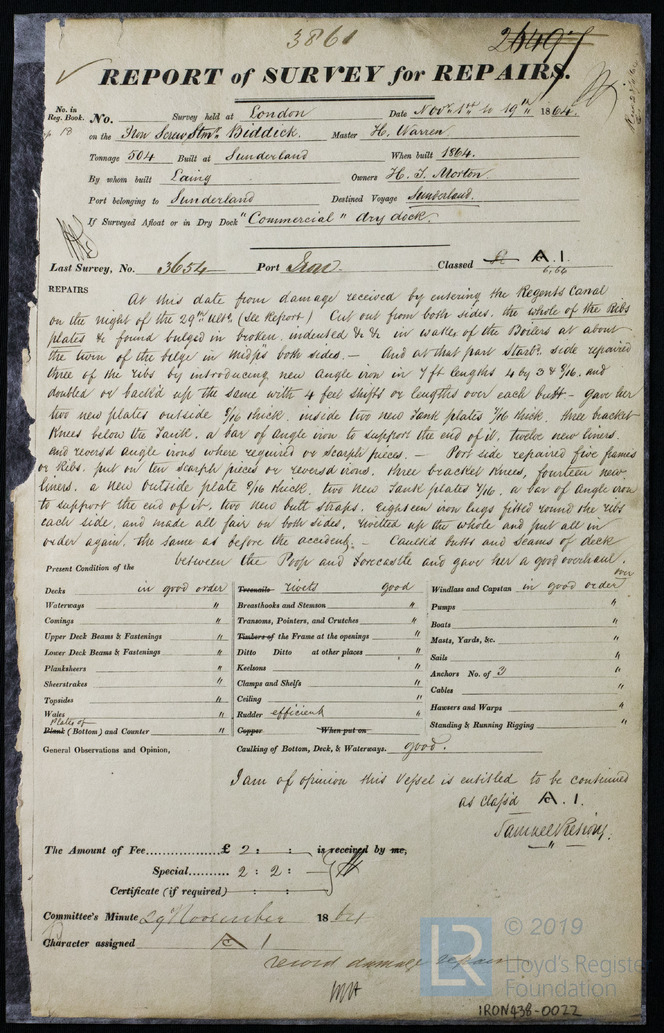 3861
REPORT of SURVEY for REPAIRS.
No. in Reg. Book.
No. Survey held at London Date Novr. 1st to 19th 1864.
on the Iron Screw Stmr. Biddick. Master H. Warren
Tonnage 504 Built at Sunderland When built 1864.
By whom built Laing Owners H. T. Morton
Port belonging to Sunderland Destined Voyage Sunderland.
If Surveyed Afloat or in Dry Dock "Commercial" dry dock.
Last Survey, No. 3654 Port Iron. Classed A. 1.
6,66
REPAIRS At this date from damage received by entering the Regents Canal
on the night of the 29th ulto. (See Report) Cut out from both sides, the whole of the Ribs
plates & found bulged in broken, indented &c &c in wake of the Boilers at about
the turn of the bilge in midps both sides. — And at that part Starbd. side repaired
three of the ribs by introducing new Angle iron in 7 ft lengths 4 by 3 & 8/16, and
doubled or back'd up the same with 4 feet shifts or lengths over each butt - gave her
two new plates outside 9/16 thick. inside two new Tank plates 7/16 thick. three bracket
Knees below the Tank, a bar of Angle iron to support the end of it, twelve new liners.
And reversd angle irons where required or scarph pieces. — Port side repaired five frames
or Ribs. put on ten scarph pieces or reversd irons. three bracket Knees, fourteen new
liners. a new outside plate 9/16 thick. two new Tank plates 7/16, a bar of Angle iron
to support the end of it, two new butt straps. Eighteen iron lugs fitted round the ribs
each side, and made all fair on both sides, rivetted up the whole and put all in
order again, the same as before the accident. — Caulk'd butts and seams of deck
between the Poop and Forecastle and gave her a good overhaul.
over
Present Condition of the
Decks in good order
Waterways "
Comings "
Upper Deck Beams & Fastenings "
Lower Deck Beams & Fastenings "
Planksheers "
Sheerstrakes "
Topsides "
Wales "
Plates of
Plank (Bottom) and Counter "
Treenails rivets good
Breasthooks and Stemson "
Transoms, Pointers, and Crutches "
Timbers of the Frame at the openings "
Ditto Ditto at other places "
Keelsons "
Clamps and Shelfs "
Ceiling "
Rudder efficient
Copper When put on
Caulking of Bottom, Deck, & Waterways. good.
Windlass and Capstan in good order
Pumps "
Boats "
Masts, Yards, &c. "
Sails "
Anchors No. of 3 "
Cables "
Hawsers and Warps "
Standing & Running Rigging "
General Observations and Opinion,
I am of opinion this Vessel is entitled to be continued
as class'd A. 1.
The Amount of Fee............... £ 2 : : is received by me,
Special.......... 2 : 2 :
Certificate (if required) : :
Committee's Minute 29 November 1864
Character assigned A 1
record damage repair
© 2019
LR
Lloyd's Register
Foundation
IRON438-0022